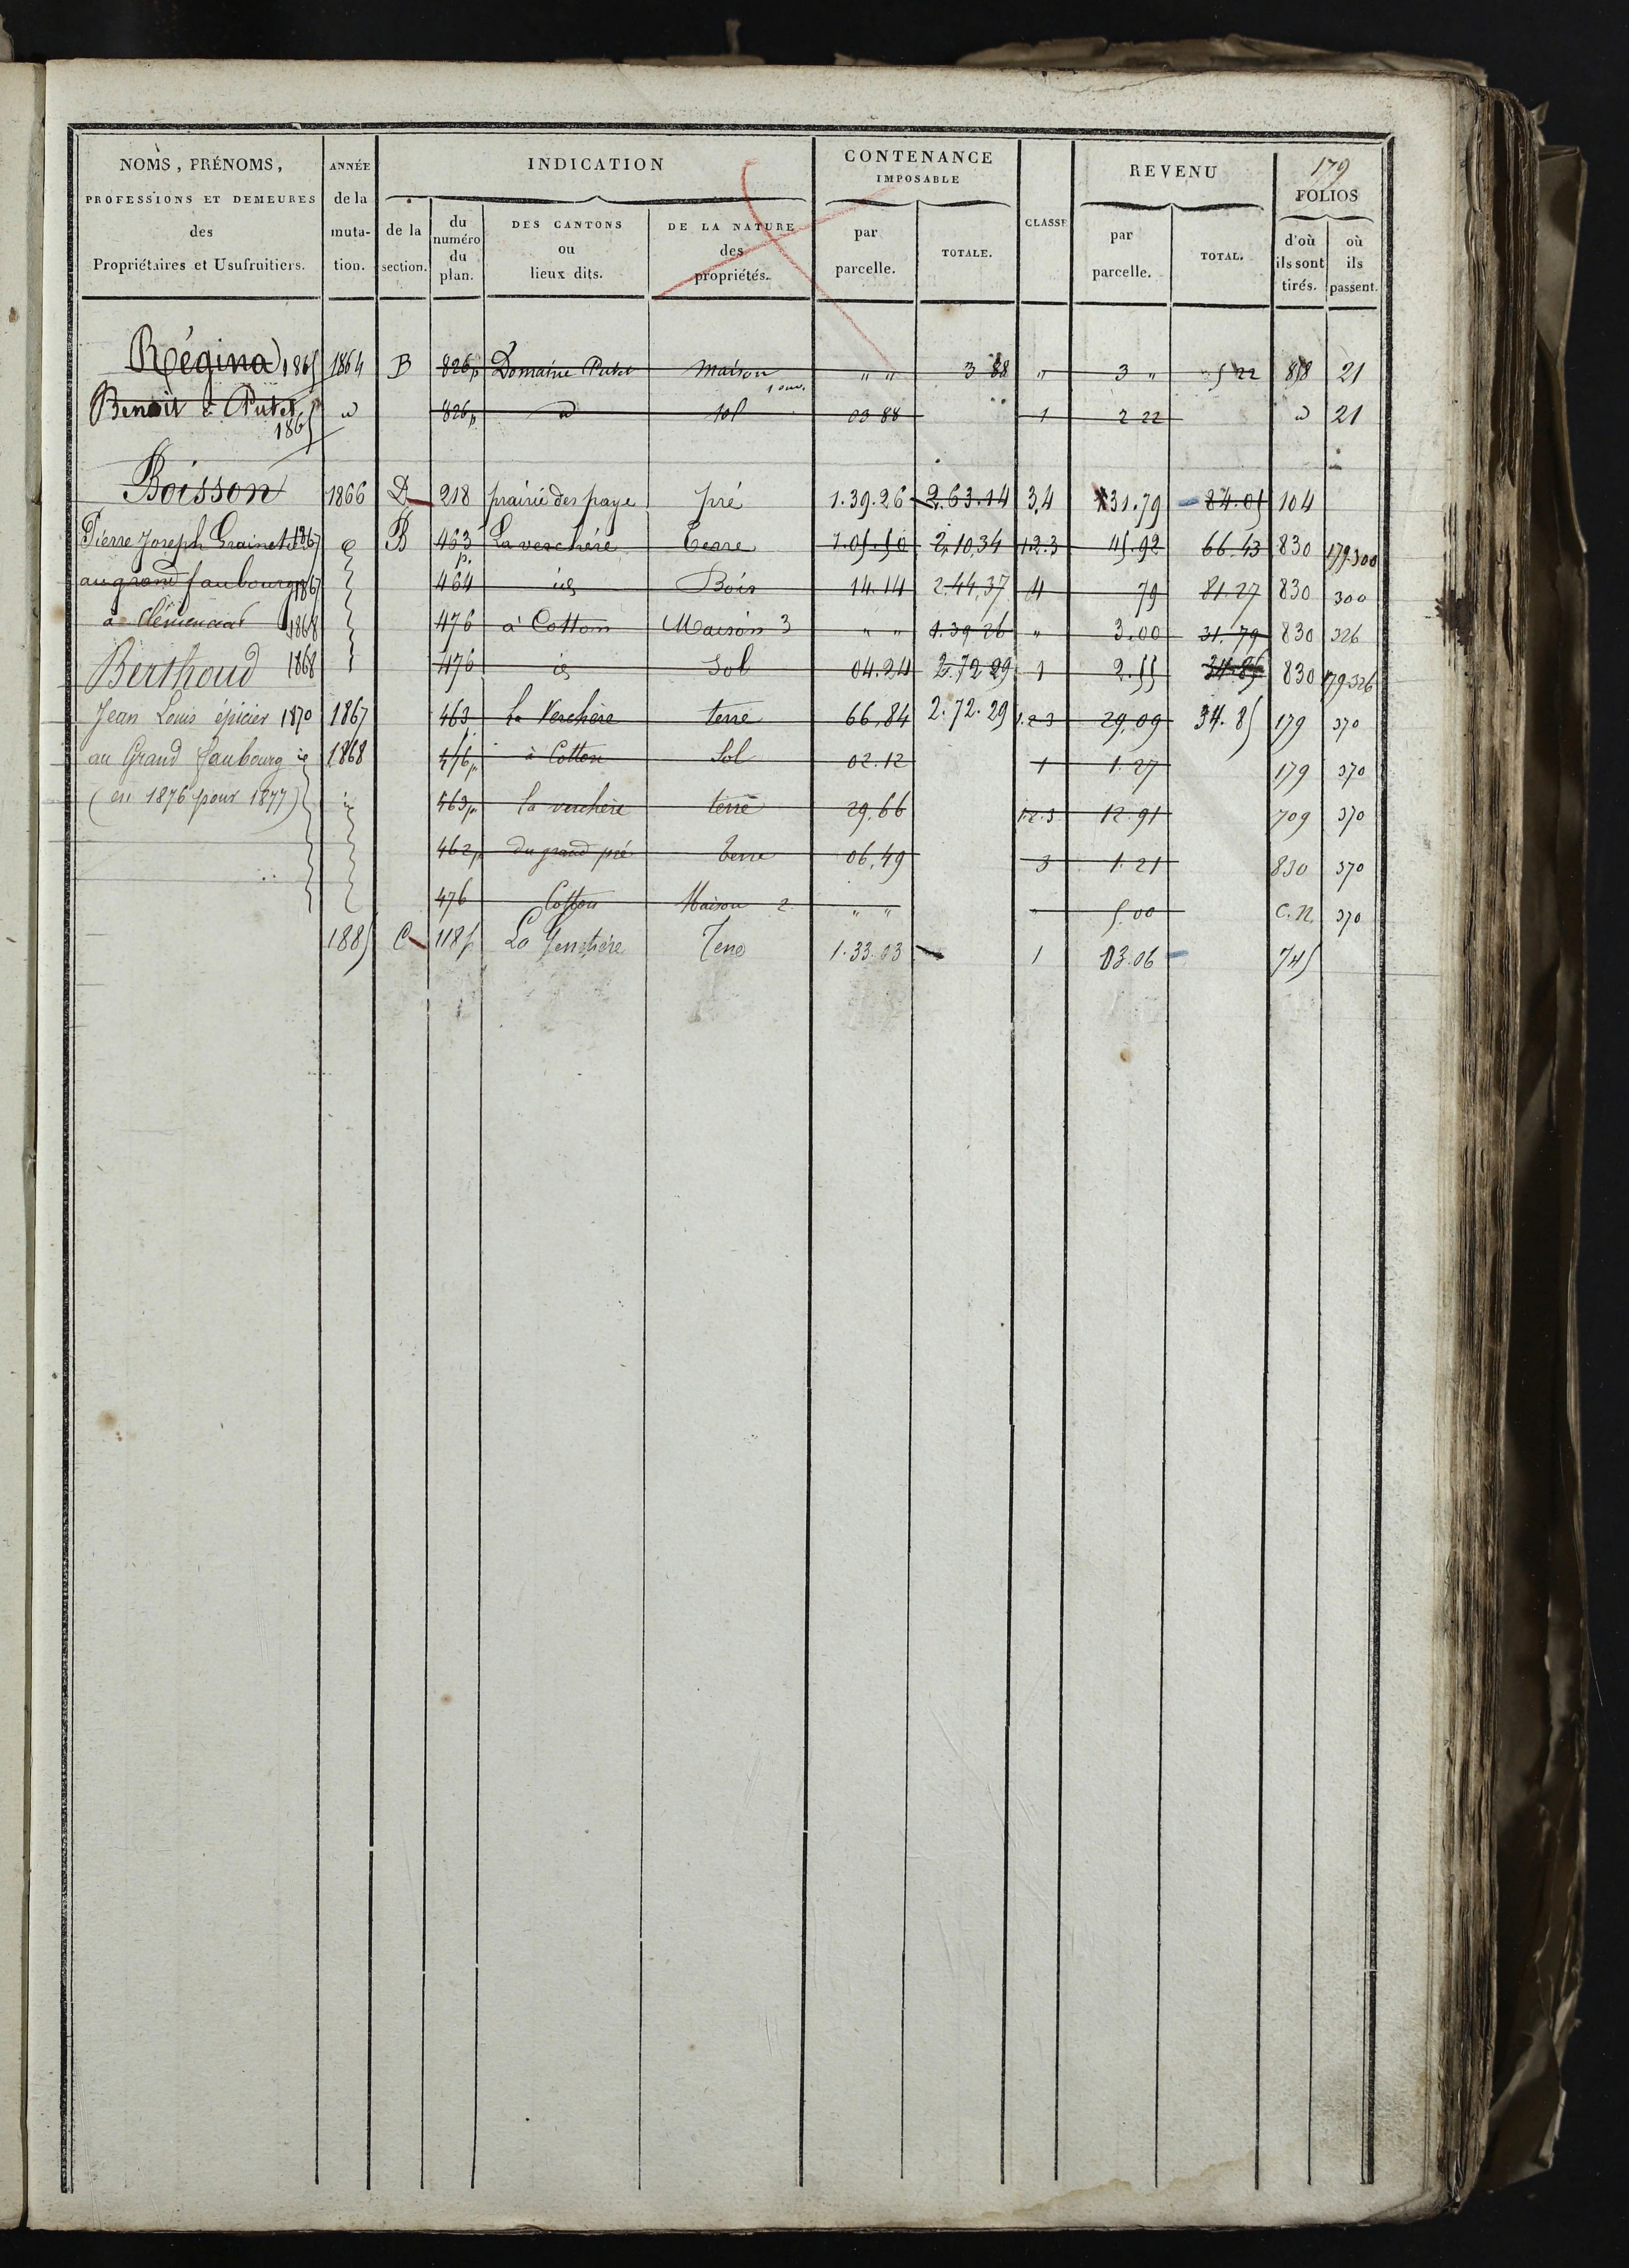 179
NOMS, PRÉNOMS, PROFESSIONS ET DEMEURES des Propriétaires et Usufruitiers.
ANNÉE de la muta- tion.
INDICATION
de la section.
du numéro du plan.
DES CANTONS ou lieux dits.
DE LA NATURE des propriétés.
CONTENANCE IMPOSABLE
par parcelle.
TOTALE.
CLASSE
REVENU
par parcelle.
TOTAL.
FOLIOS
d'où ils sont tirés.
où ils passent.
Régina 1865 1864 B 826p Domaine Putet Maison 1 ouv. " " 3 88 " 3 " 5 22 858 21
Benoit à Putet 1865 d 826p d sol 03 88 1 2 22 d 21
Boisson 1866 D 218 prairie des paye pré 1.39.26 2.63.14 3,4 31.79 84.05 104
Pierre Joseph Grainetier 1867 B 463 p. La verchère Terre 1.05.50 2,10,34 1.2.3 45.92 66.43 830 179.300
au grand faubourg 1867 464 id Bois 14.14 2.44,37 4 79 81.27 830 300
à Clémenciat 1868 476 à Cotton Maison 3 " " 1.39 26 " 3.00 31,79 830 326
Berthoud 1868 476 id Sol 04.24 2.72 29 1 2.55 34.85 830 179.326
Jean Louis épicier 1870 1867 463 la Verchère terre 66,84 2.72.29 1.2.3 29,09 34.85 179 370
au Grand faubourg id 1868 476p à Cotton Sol 02.12 1 1.27 179 370
(en 1876 pour 1877) id 463p la verchère terre 29,66 1.2.3 12.91 709 370
462p du grand pré terre 06,49 3 1.21 830 370
476 Cotton Maison 2 " " " 5.00 C.N. 370
1885 C 118p La Terre 1.33.03 1 03.06 745